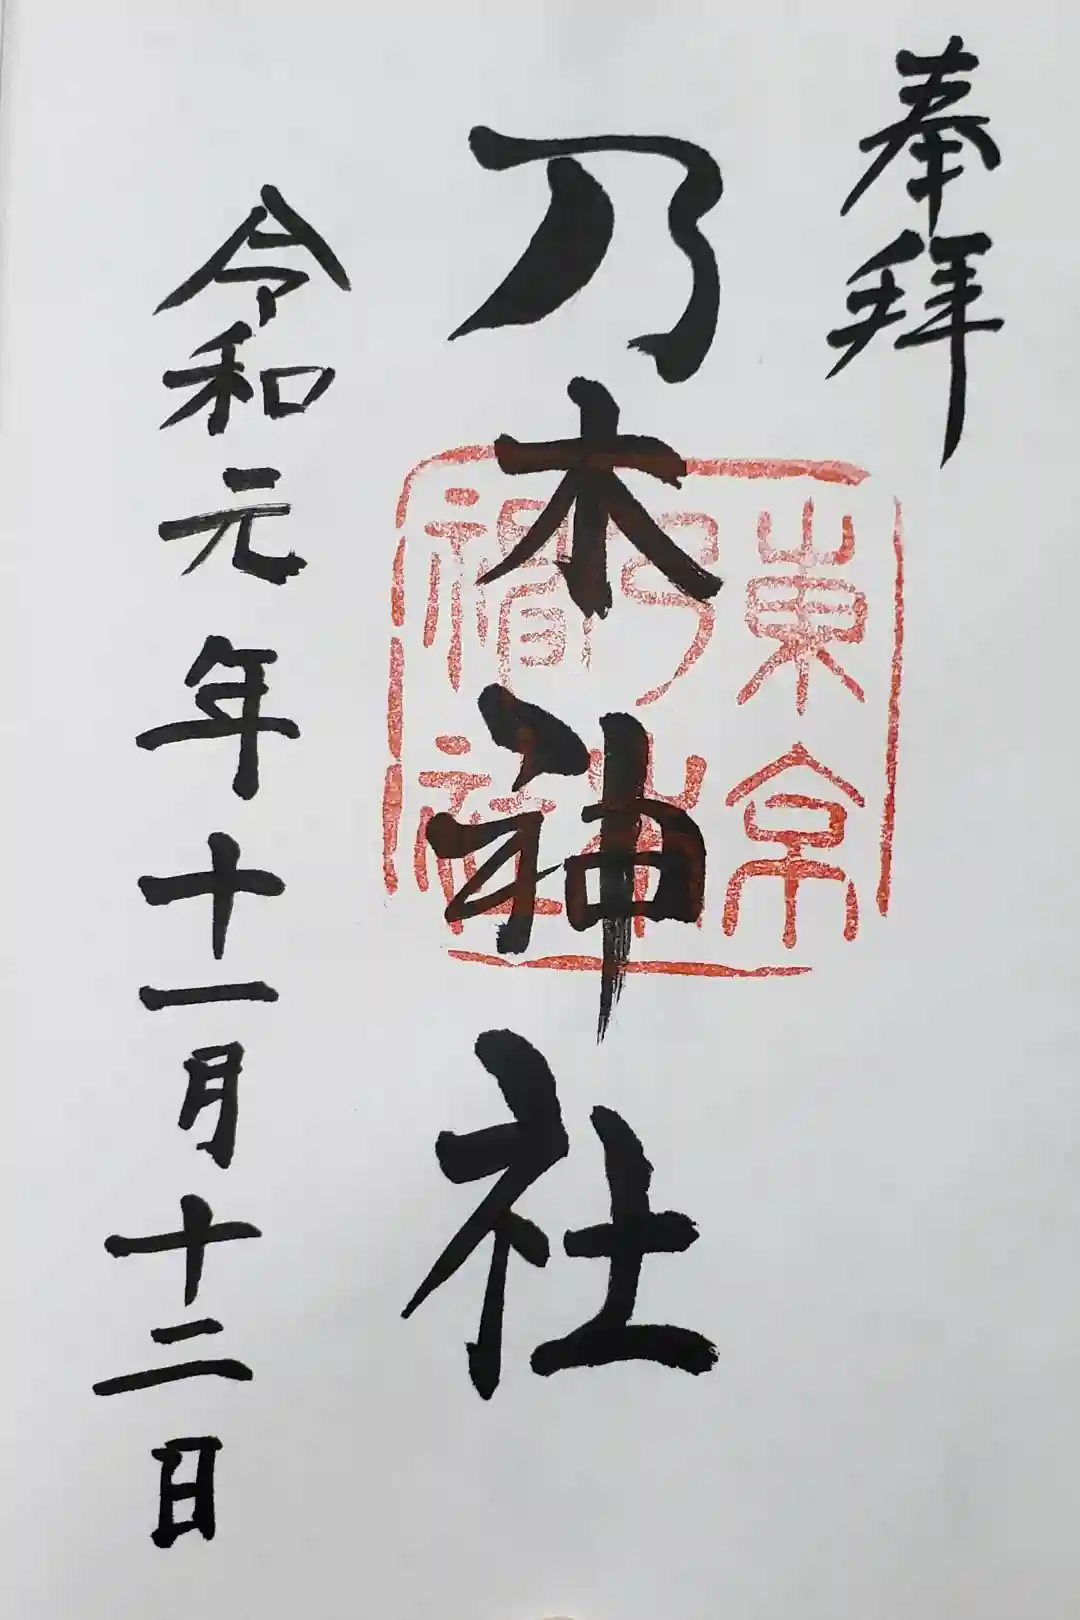 奉拜
乃木神社
東京
乃木
神社
令和元年十一月十二日